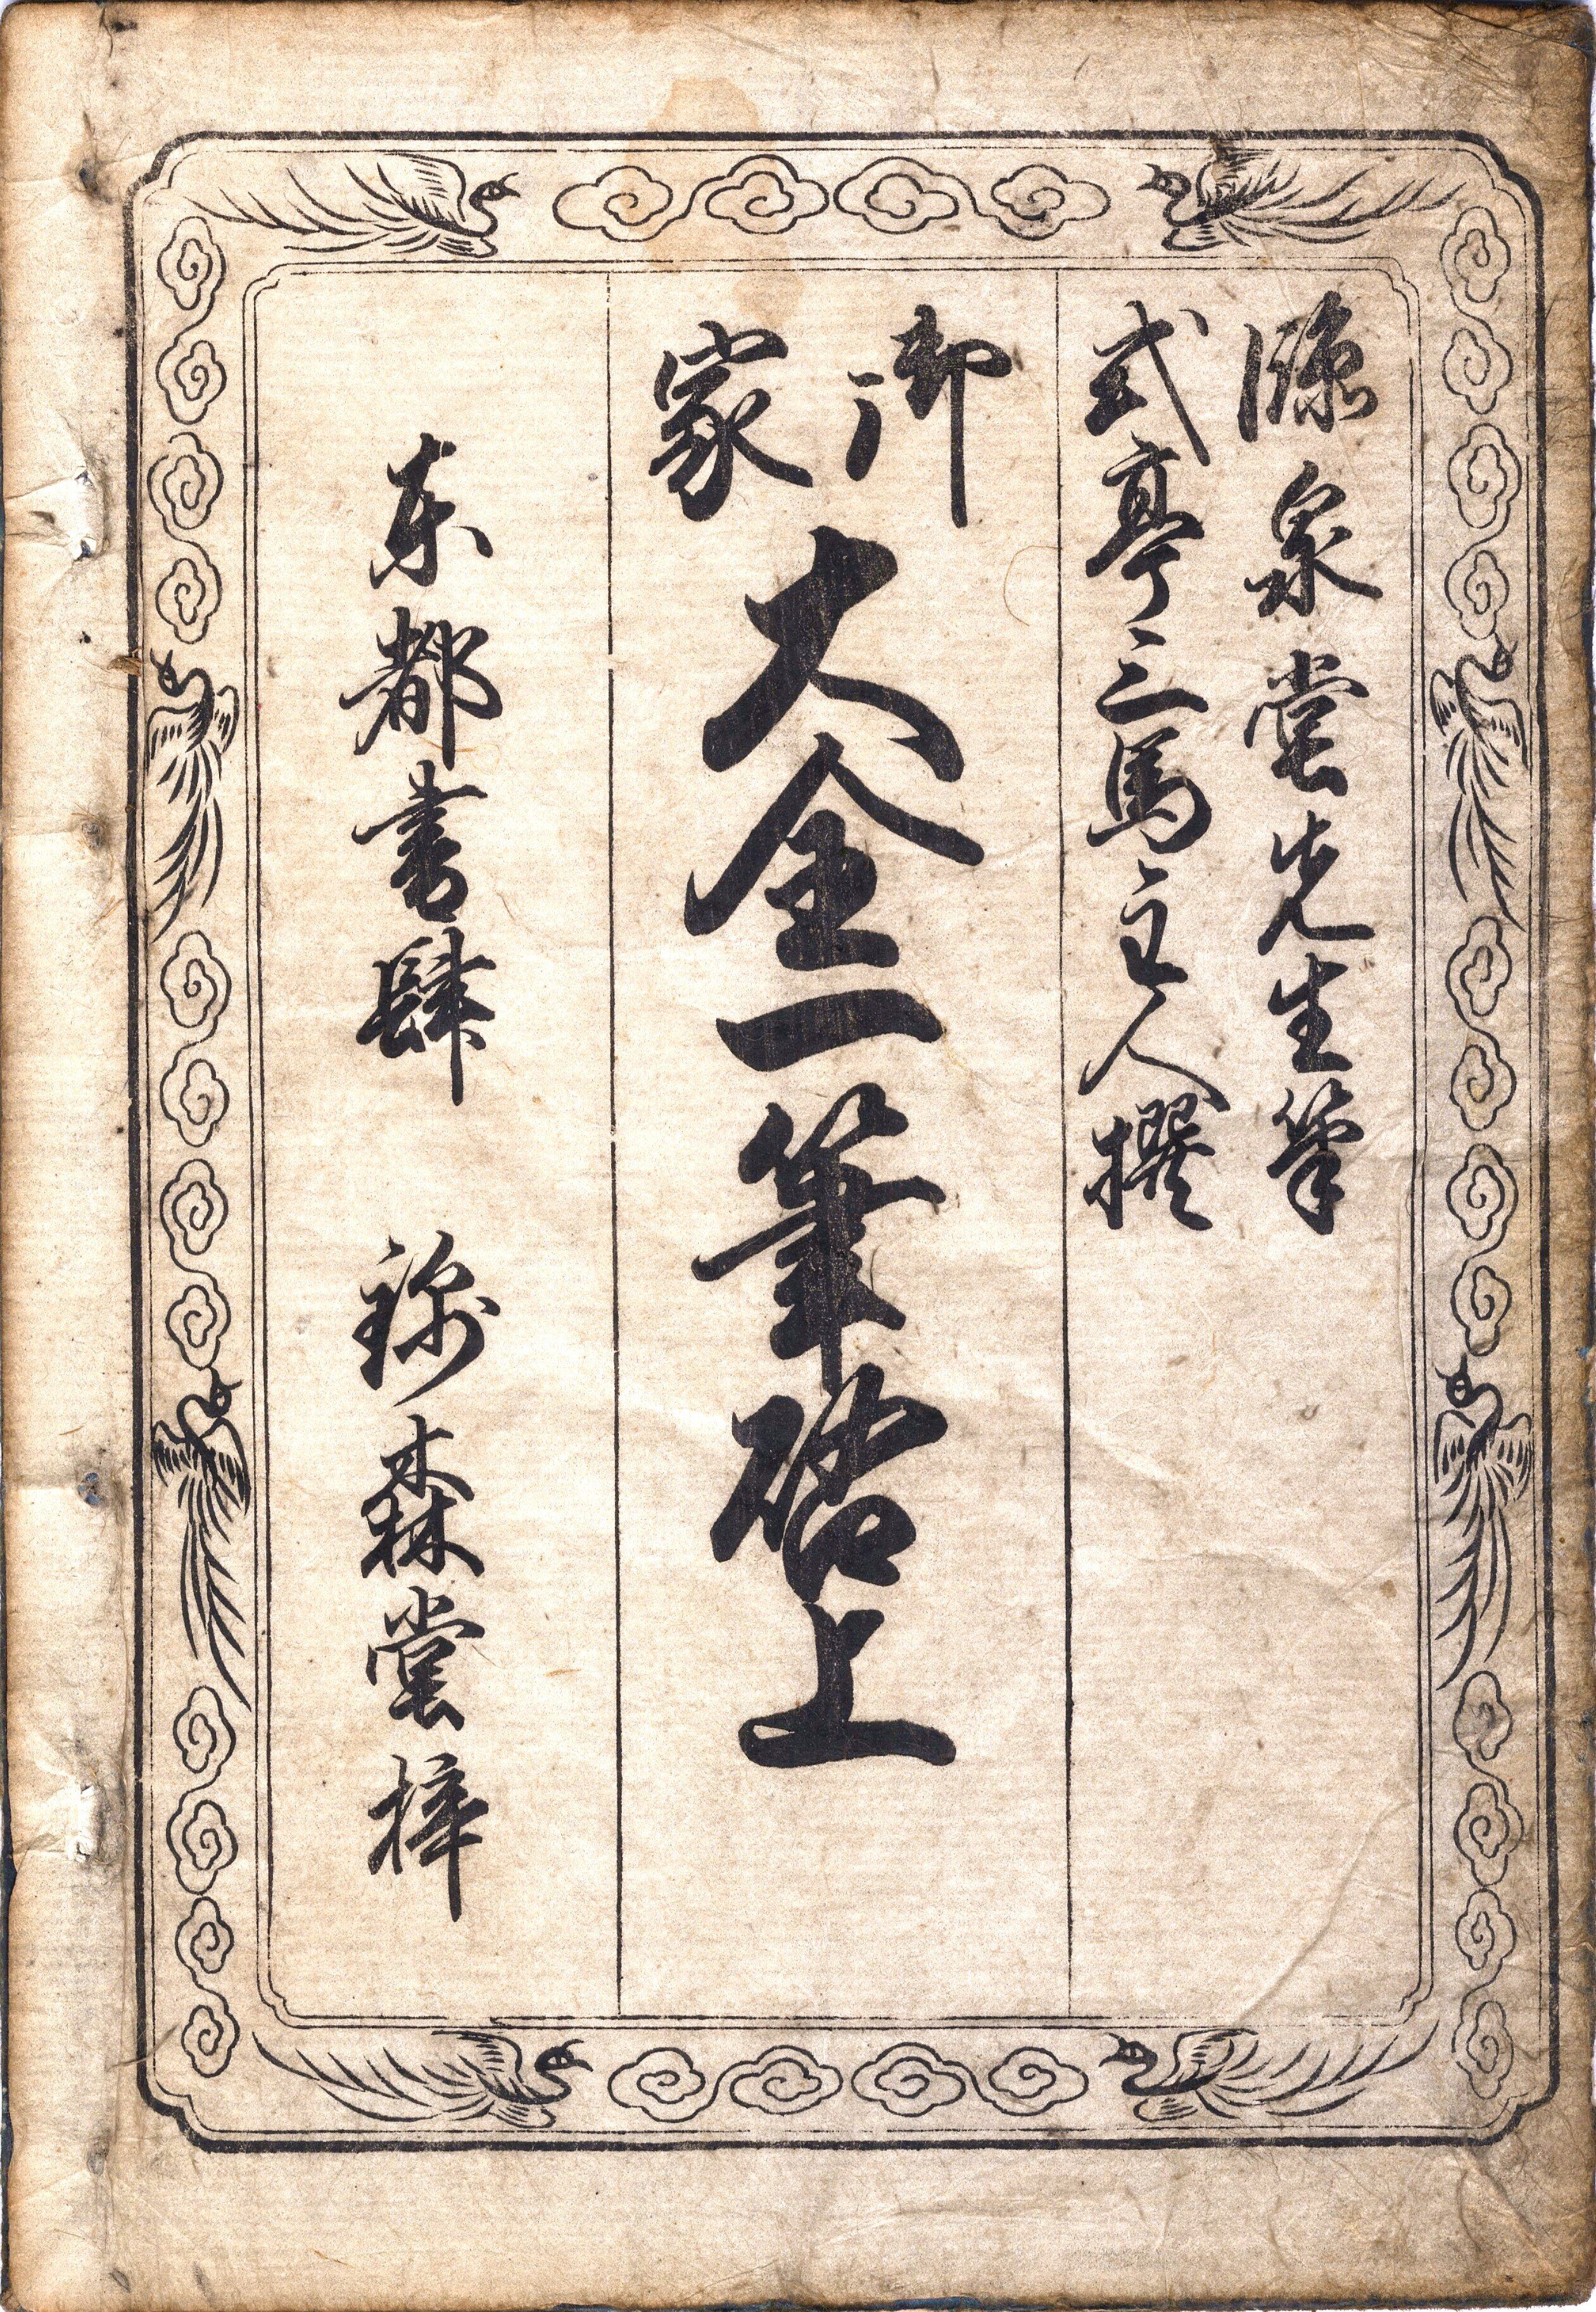 源泉堂先生筆
式亭三馬主人撰
御家
大全一筆啓上
東都書肆 錦森堂梓